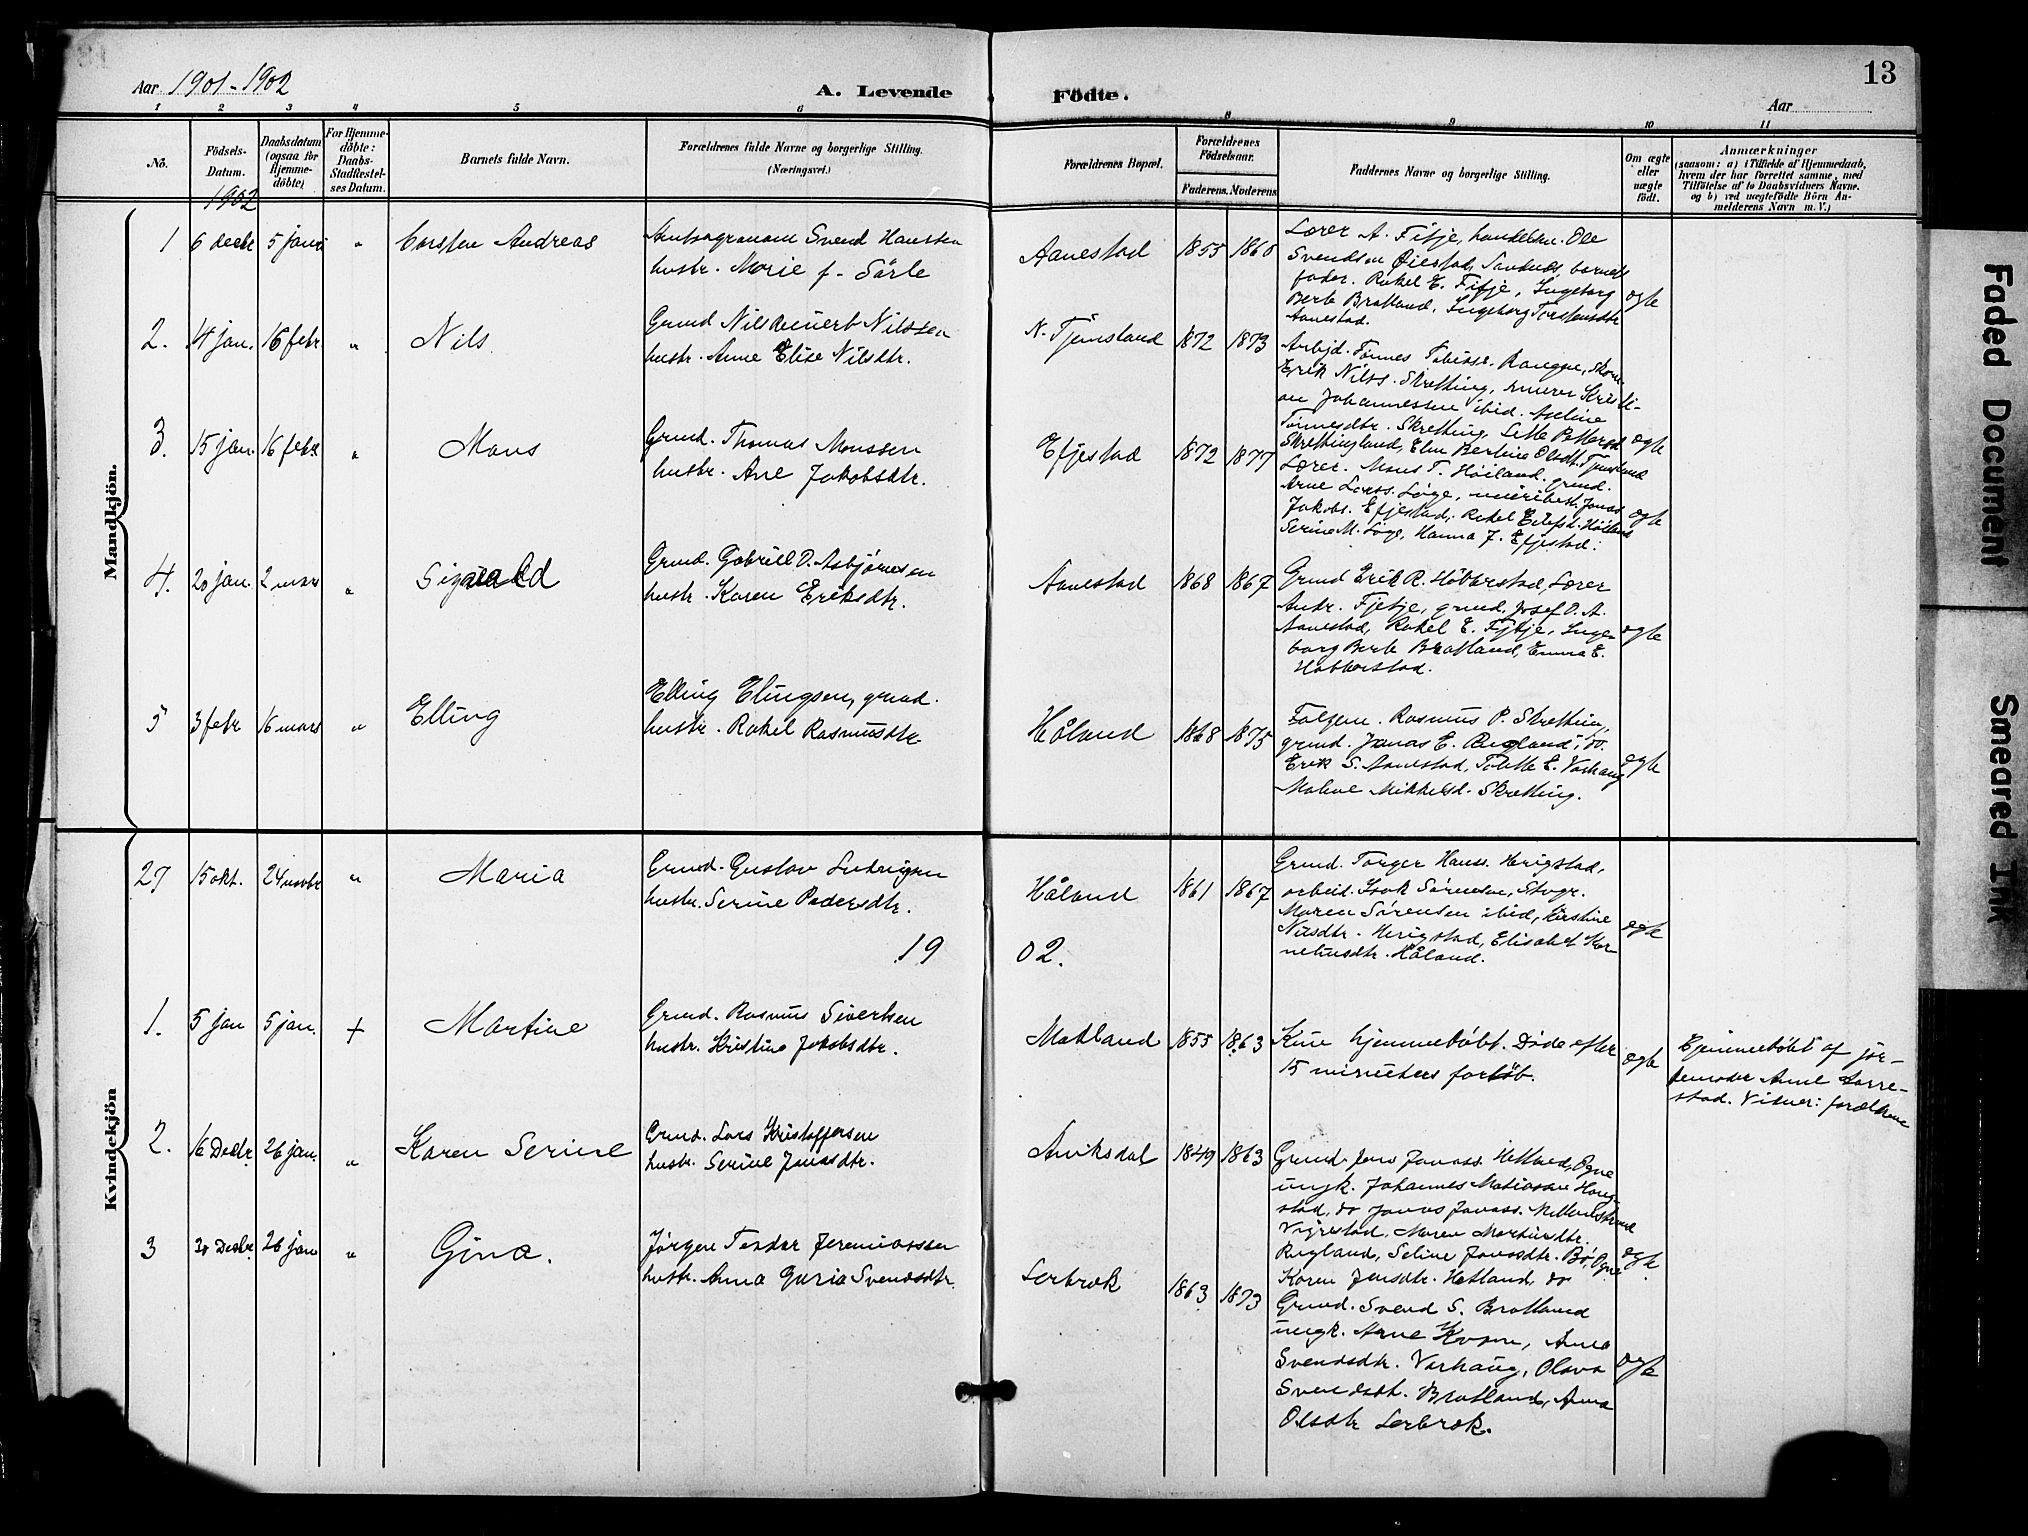 13
Aar 1901-1902
A. Levende Födte.
Aar
1 2 3 4 5 6 8 9 10 11
Nô.
Födsels-Datum.
Daabsdatum (ogsaa for Hjemme-döbte)
For Hjemme-döbte: Daabs-Stadfæstel-ses Datum.
Barnets fulde Navn.
Forældrenes fulde Navne og borgerlige Stilling. (Næringsvei.)
Forældrenes Bopæl.
Forældrenes Födselsaar.
Faderens. Moderens.
Faddernes Navne og borgerlige Stilling.
Om ægte eller uægte födt.
Anmærkninger
saasom: a) i Tilfælde af Hjemmedaab,
hvem der har forrettet samme, med
Tilföielse af to Daabsvidners Navne.
og b) ved uægtefödte Börn An-
melderens Navn m. V.)
1902
Mandkjön.
1 6 decbr 5 jan " Carsten Andreas
Svend Hansen
hustr. Marie f. Sörle
Aanestad 1855 1860
Lærer A. Fitje, Ole
Svendsen Øiestad, Sandnes, barnets
fader. Rakel E. Fitje, Ingeborg
Berte Bratland, Ingeborg Torstensdtr
Aanestad.
ægte
2. 14 jan. 16 febr " Nils
Grund Nils Nilssen
hustr. Anne Elise Nilsdtr.
N. Tjemsland 1872 1873
Arbejd. Tønnes Tobiass.
Erik Nilss. Skretting, Kristi-
an Johannessen ibid. Axeline
Tönnesdtr. Skretting,
Skrettingland, Elen Bertine Olsdt. Tjemsland
ægte
3. 15 jan. 16 febr. " Mons
Grund. Thomas Monssen
hustr. Ane Jakobsdtr.
Efjestad 1872 1877
Lærer. Mons T. Höiland. grund.
Arne Larss. Løge, Jonas
Jakobs. Efjestad, Rakel
Serine M. Løge, Hanna J. Efjestad.
ægte
4. 20 jan. 2 mars " Sigvald
Grund. Gabriel O. Asbjørnsen
hustr. Karen Eriksdtr.
Aanestad 1868 1867
Grund Erik R. Håbberstad, Lærer
Andr. Fjetje, grund. Josef O. A.
Aanestad, Rakel E. Fitje, Inge-
borg Berte Bratland, Emma E.
Habberstad.
ægte
5 3 febr 16 mars " Elling
Elling Elingsen, grund.
hustr. Rakel Rasmusdtr
Håland 1868 1875
Rasmus P. Skretting,
grund. Jonas E. Rugland, do.
Erik S. Aanestad, Tolette E. Varhaug
Malene Mikkelsd. Skretting.
ægte
Kvindekjön
27 15 okt. 24 novbr " Maria
Grund. Gustav Ludvigsen
hustr. Serine Pedersdtr.
Håland 1861 1867
Grund. Torger Hanss. Herigstad,
arbeid. Isak Sørensen, Stogr.
Maren Sørensen ibid, Kirstine
Nilsdtr. Herigstad, Elisabet Kor-
neliusdtr. Håland.
ægte
1902.
1. 5 jan 5 jan. + Martine
Grund. Rasmus Sivertsen
hustr. Kristine Jakobsdtr.
Matland 1855 1863
Kun hjemmedøbt. Døde efter
15 minutters forløb.
ægte
Hjemmedøbt af jor-
demoder Anne Aarre-
stad. Vidner: forældrene
2. 16 Decbr. 26 jan. " Karen Serine
Grund. Lars Kristoffersen
hustr. Serine Jonasdtr.
Aniksdal 1849 1863
Grund. Jens Jonass. Hetland, Ogne
ungk. Johannes Matiassen Haug-
stad, do Jonas Jonass.
Vigrestad, Maren Martinsdtr.
Rugland, Seline Jonasdtr. Bö, Ogne
Karen Jensdtr. Hetland, do
ægte
3 30 Decbr. 26 jan " Gina.
Jörgen Teodor Jeremiassen
hustr. Anna Guria Svendsdtr
Lerbrek 1863 1873
Grund. Svend S. Bratland
ungk. Arne Anna
Svendsdtr. Varhaug, Olava
Svendsdt. Bratland, Anna
Olsdtr Lerbrek.
ægte
Faded Document
Smeared Ink